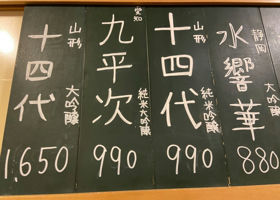 静岡
水響華
大吟醸
880
山形
十四代
純米大吟醸
990
愛知
九平次
純米大吟醸
990
山形
十四代
大吟醸
1,650